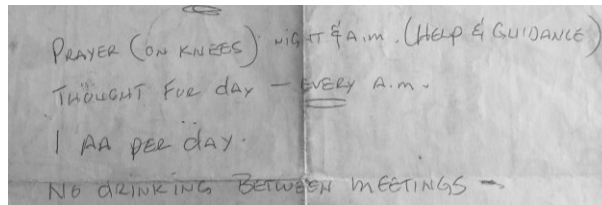 PRAYER (ON KNEES) NIGHT & A.M. (HELP & GUIDANCE)
THOUGHT FOR dAY — EVERY A.M.
1 AA PER dAY.
NO dRINKING BETWEEN MEETINGS —